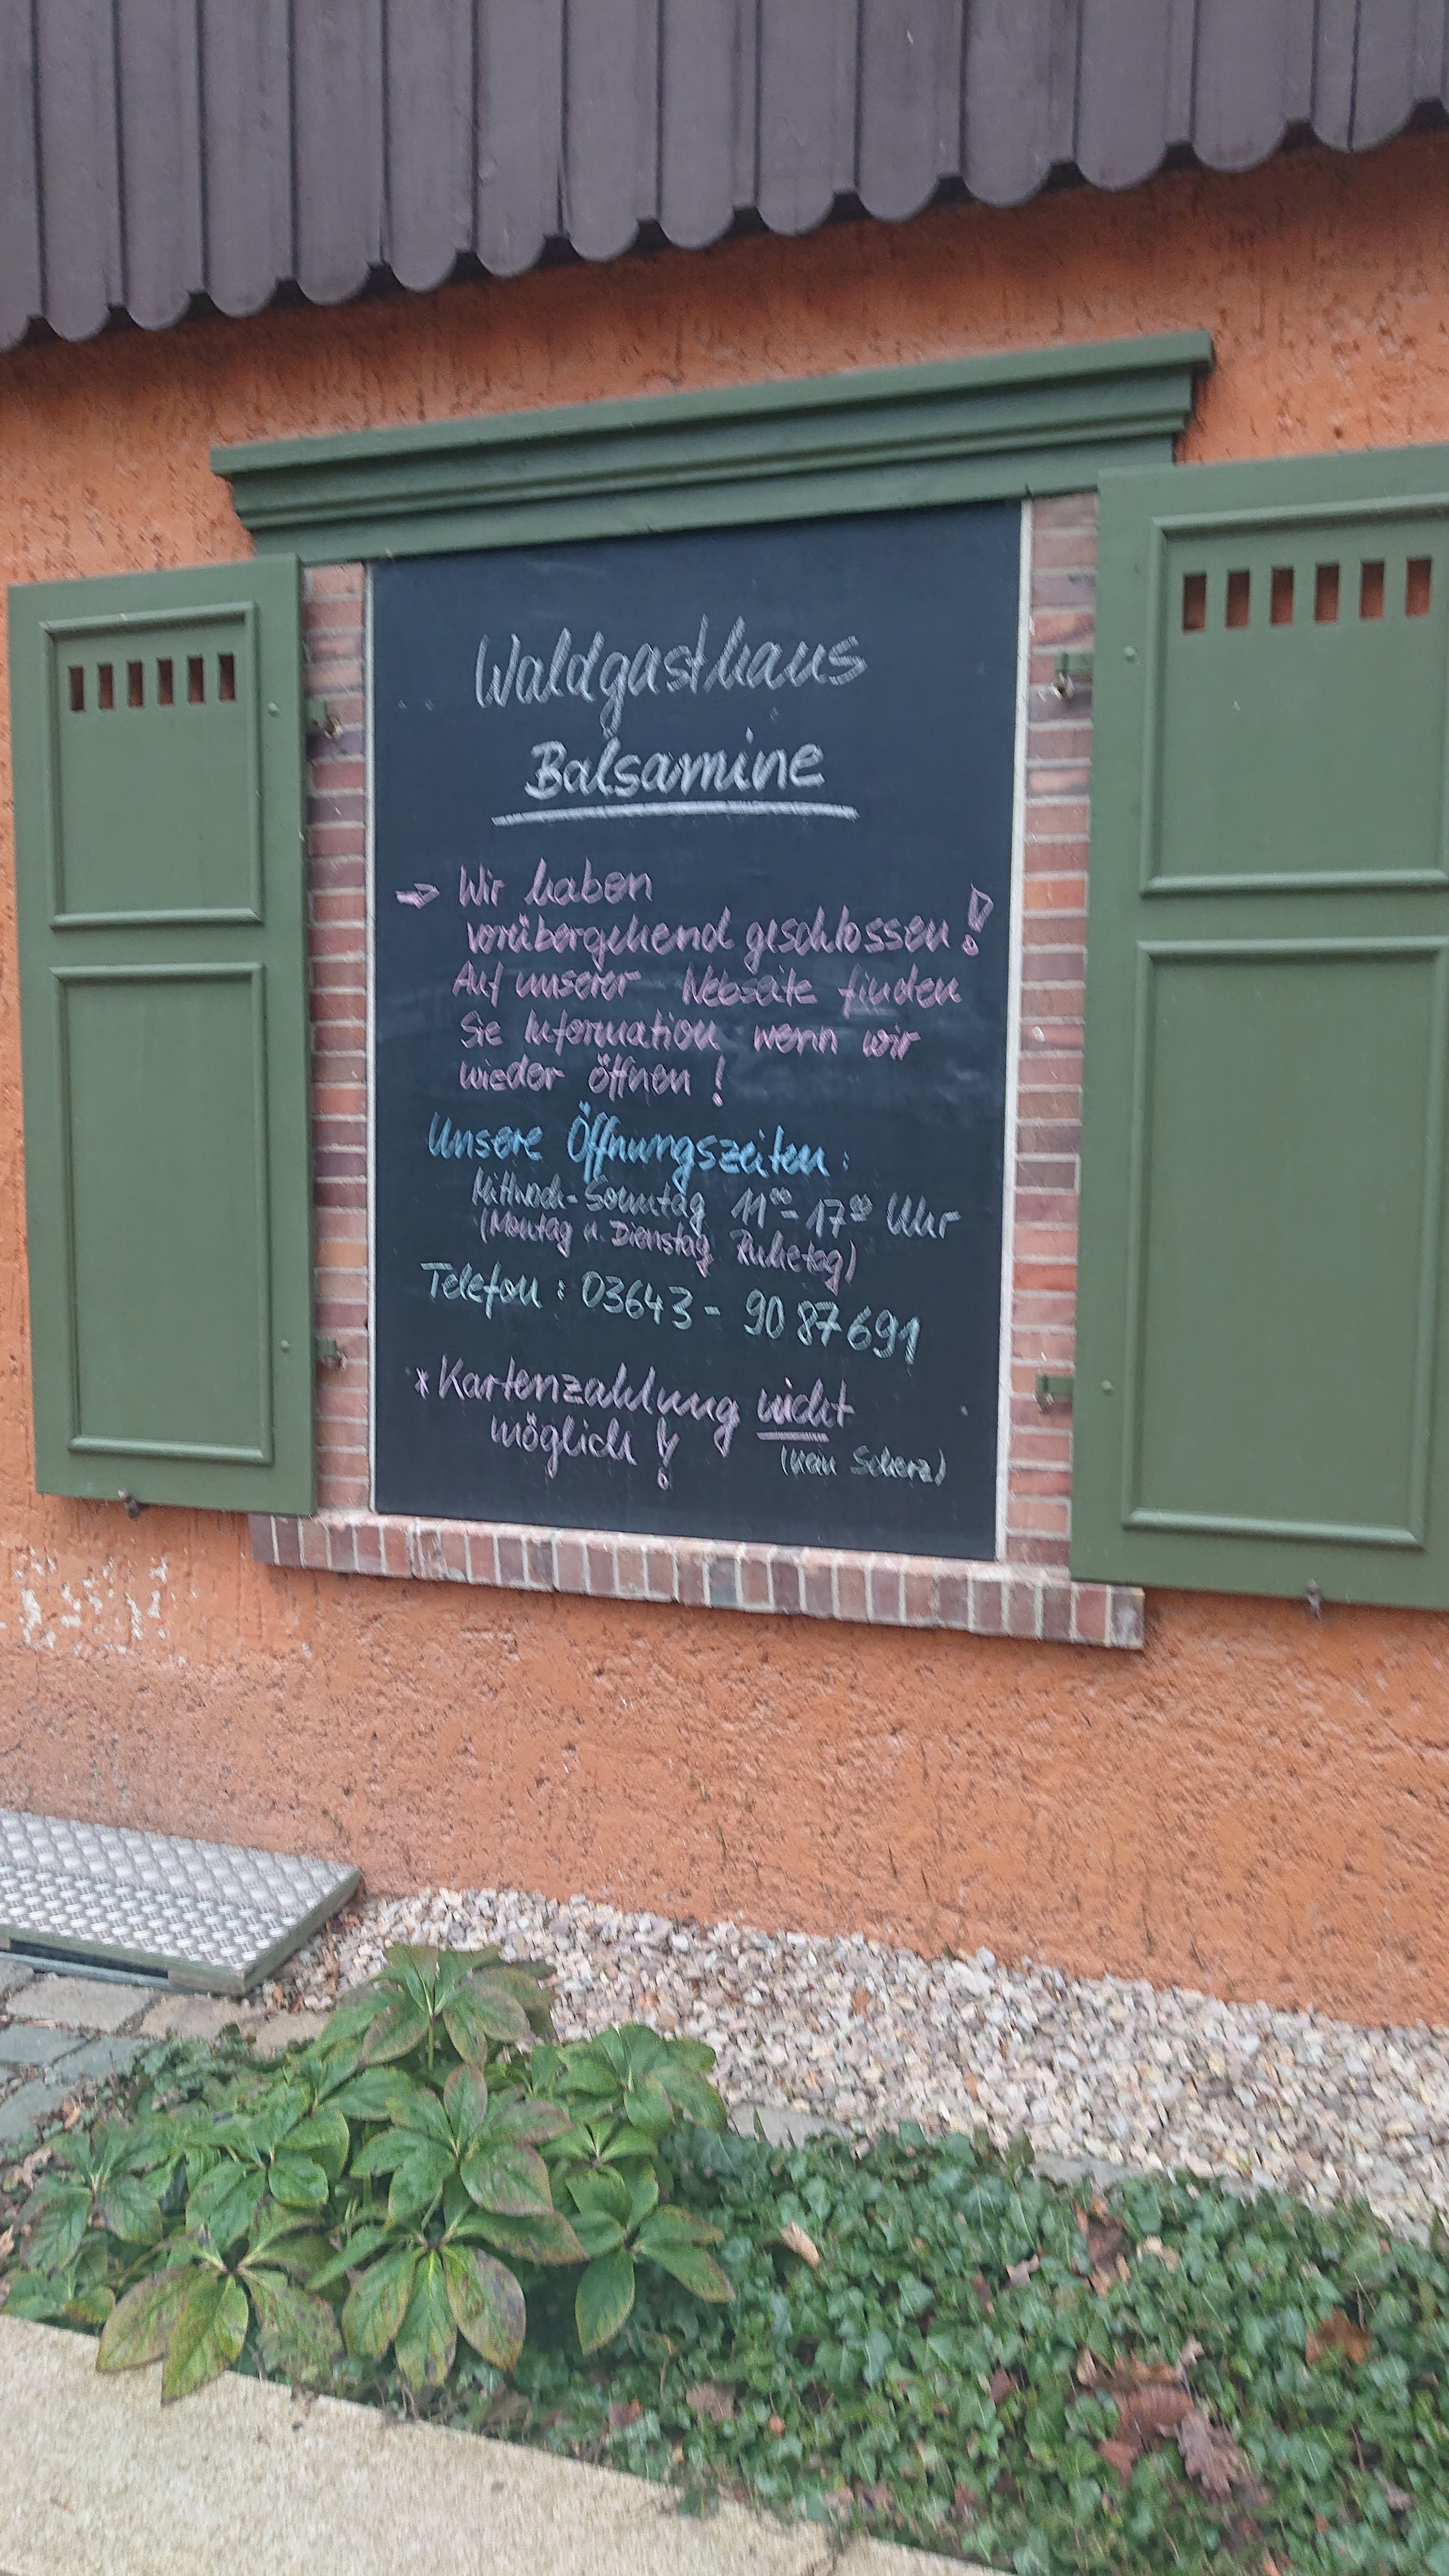 Waldgasthaus
Balsamine
⇒ Wir haben
vorübergehend geschlossen!
Auf unserer Webseite finden
Sie Information wenn wir
wieder öffnen!
Unsere Öffnungszeiten:
Mittwoch-Sonntag 11⁰⁰-17⁰⁰ Uhr
(Montag u. Dienstag Ruhetag)
Telefon: 03643 - 90 87 691
* Kartenzahlung nicht
möglich!
(kein Scherz)